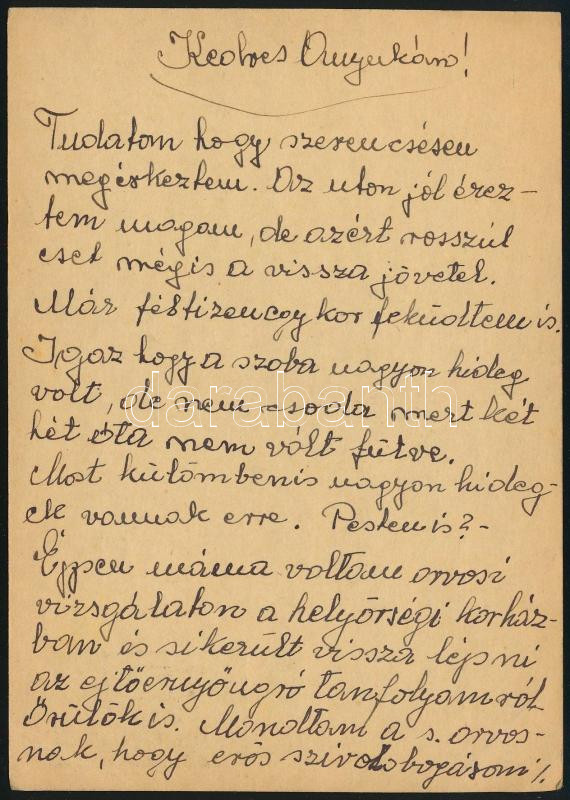 Kedves Anyukám!
Tudatom hogy szerencsésen
megérkeztem. Az uton jól érez-
tem magam, de azért rosszúl
eset mégis a vissza jövetel.
Már féltizenegykor feküdtem is.
Igaz hogy a szoba nagyon hideg
volt, de nem csoda mert két
hét óta nem vólt fűtve.
Most külömbenis nagyon hideg-
ek vannak erre. Pesten is?-
Éppen máma voltam orvosi
vizsgálaton a helyőrségi korház-
ban és sikerült vissza lépni
az ejtőernyőugró tanfolyamról
Örülök is. Mondtam a s. orvos-
nak, hogy erős szivdobogásom/.
darabanth